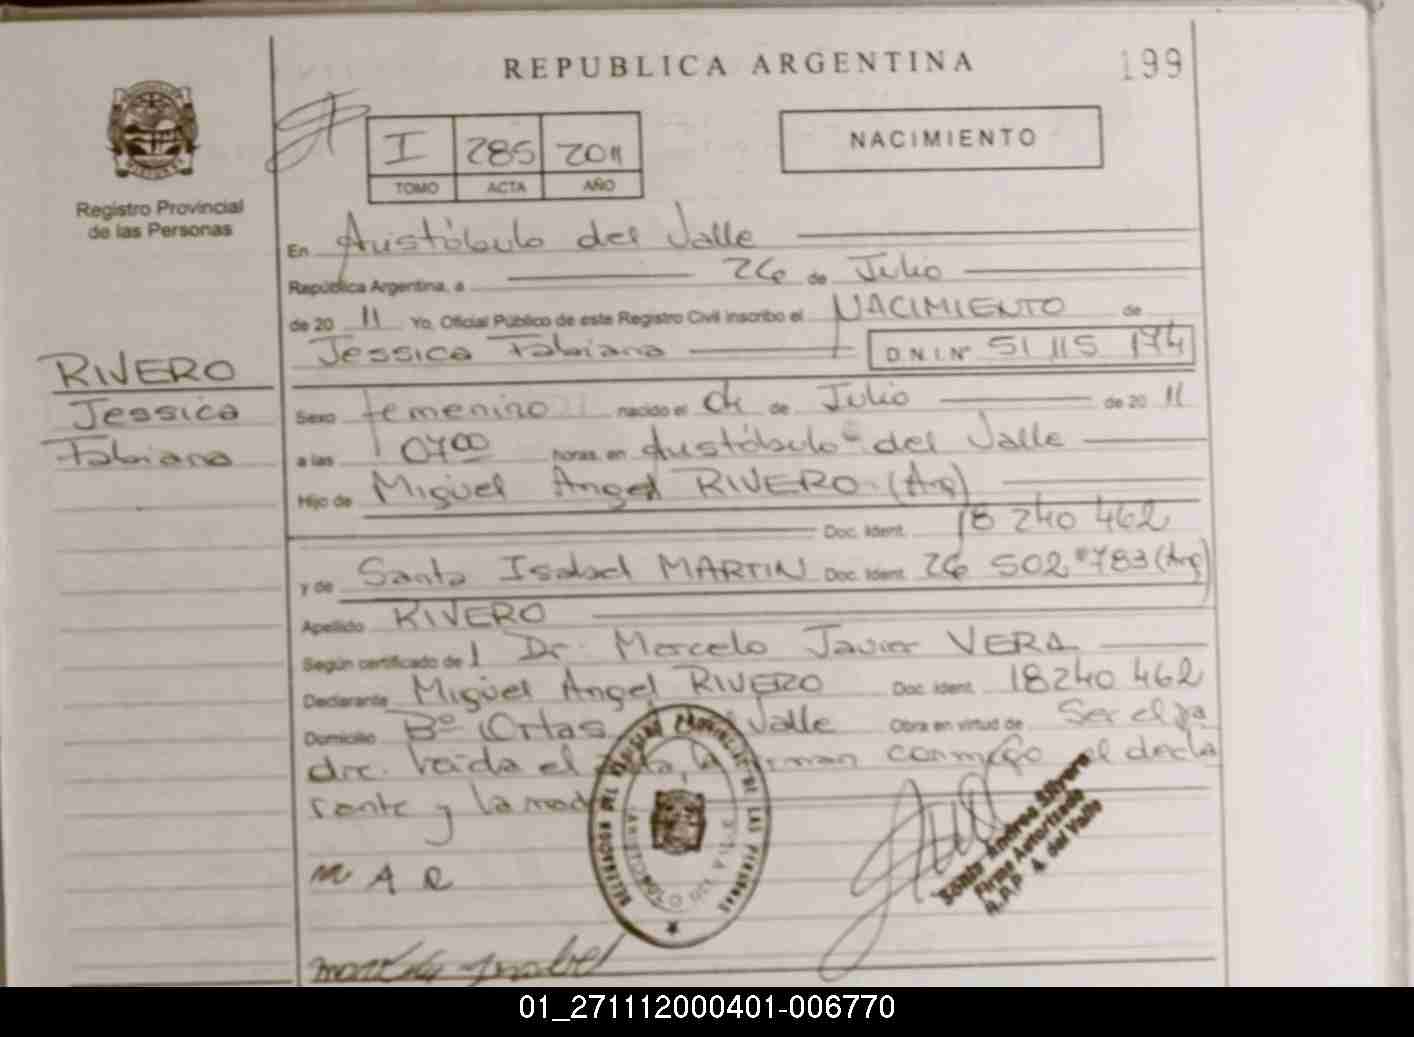 REPUBLICA ARGENTINA
199
I 285 2011
TOMO ACTA AÑO
NACIMIENTO
Registro Provincial
de las Personas
En Aristóbulo del Valle
República Argentina, a 26 de Julio
de 2011 Yo, Oficial Público de este Registro Civil inscribo el NACIMIENTO de
Jessica Fabiana D.N.I.Nº 51 115 174
RIVERO
Jessica
Fabiana
Sexo femenino nacido el 04 de Julio de 2011
a las 0700 horas. en Aristóbulo del Valle
Hijo de Miguel Angel RIVERO (Arg)
Doc. Ident. 18 240 462
y de Santa Isabel MARTIN Doc. Ident. 26 502 783 (Arg)
Apellido RIVERO
Según certificado de Dr. Marcelo Javier VERA
Declarante Miguel Angel RIVERO Doc. Ident. 18240 462
Domicilio Bº Valle Obra en virtud de Ser el pa
dre. Leida el firman conmigo el decla
rante y la mad
M A R
Isabel
DELEGACION DEL REGISTRO PROVINCIAL DE LAS PERSONAS
Sonia Andrea Silvera
Firma Autorizada
A. del Valle
01_271112000401-006770